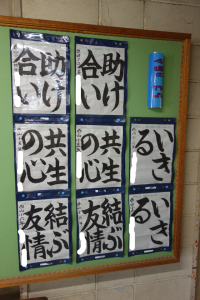 助け
合い
助け
合い
いき
る
共生
の心
共生
の心
いき
る
結ぶ
友情
結ぶ
友情